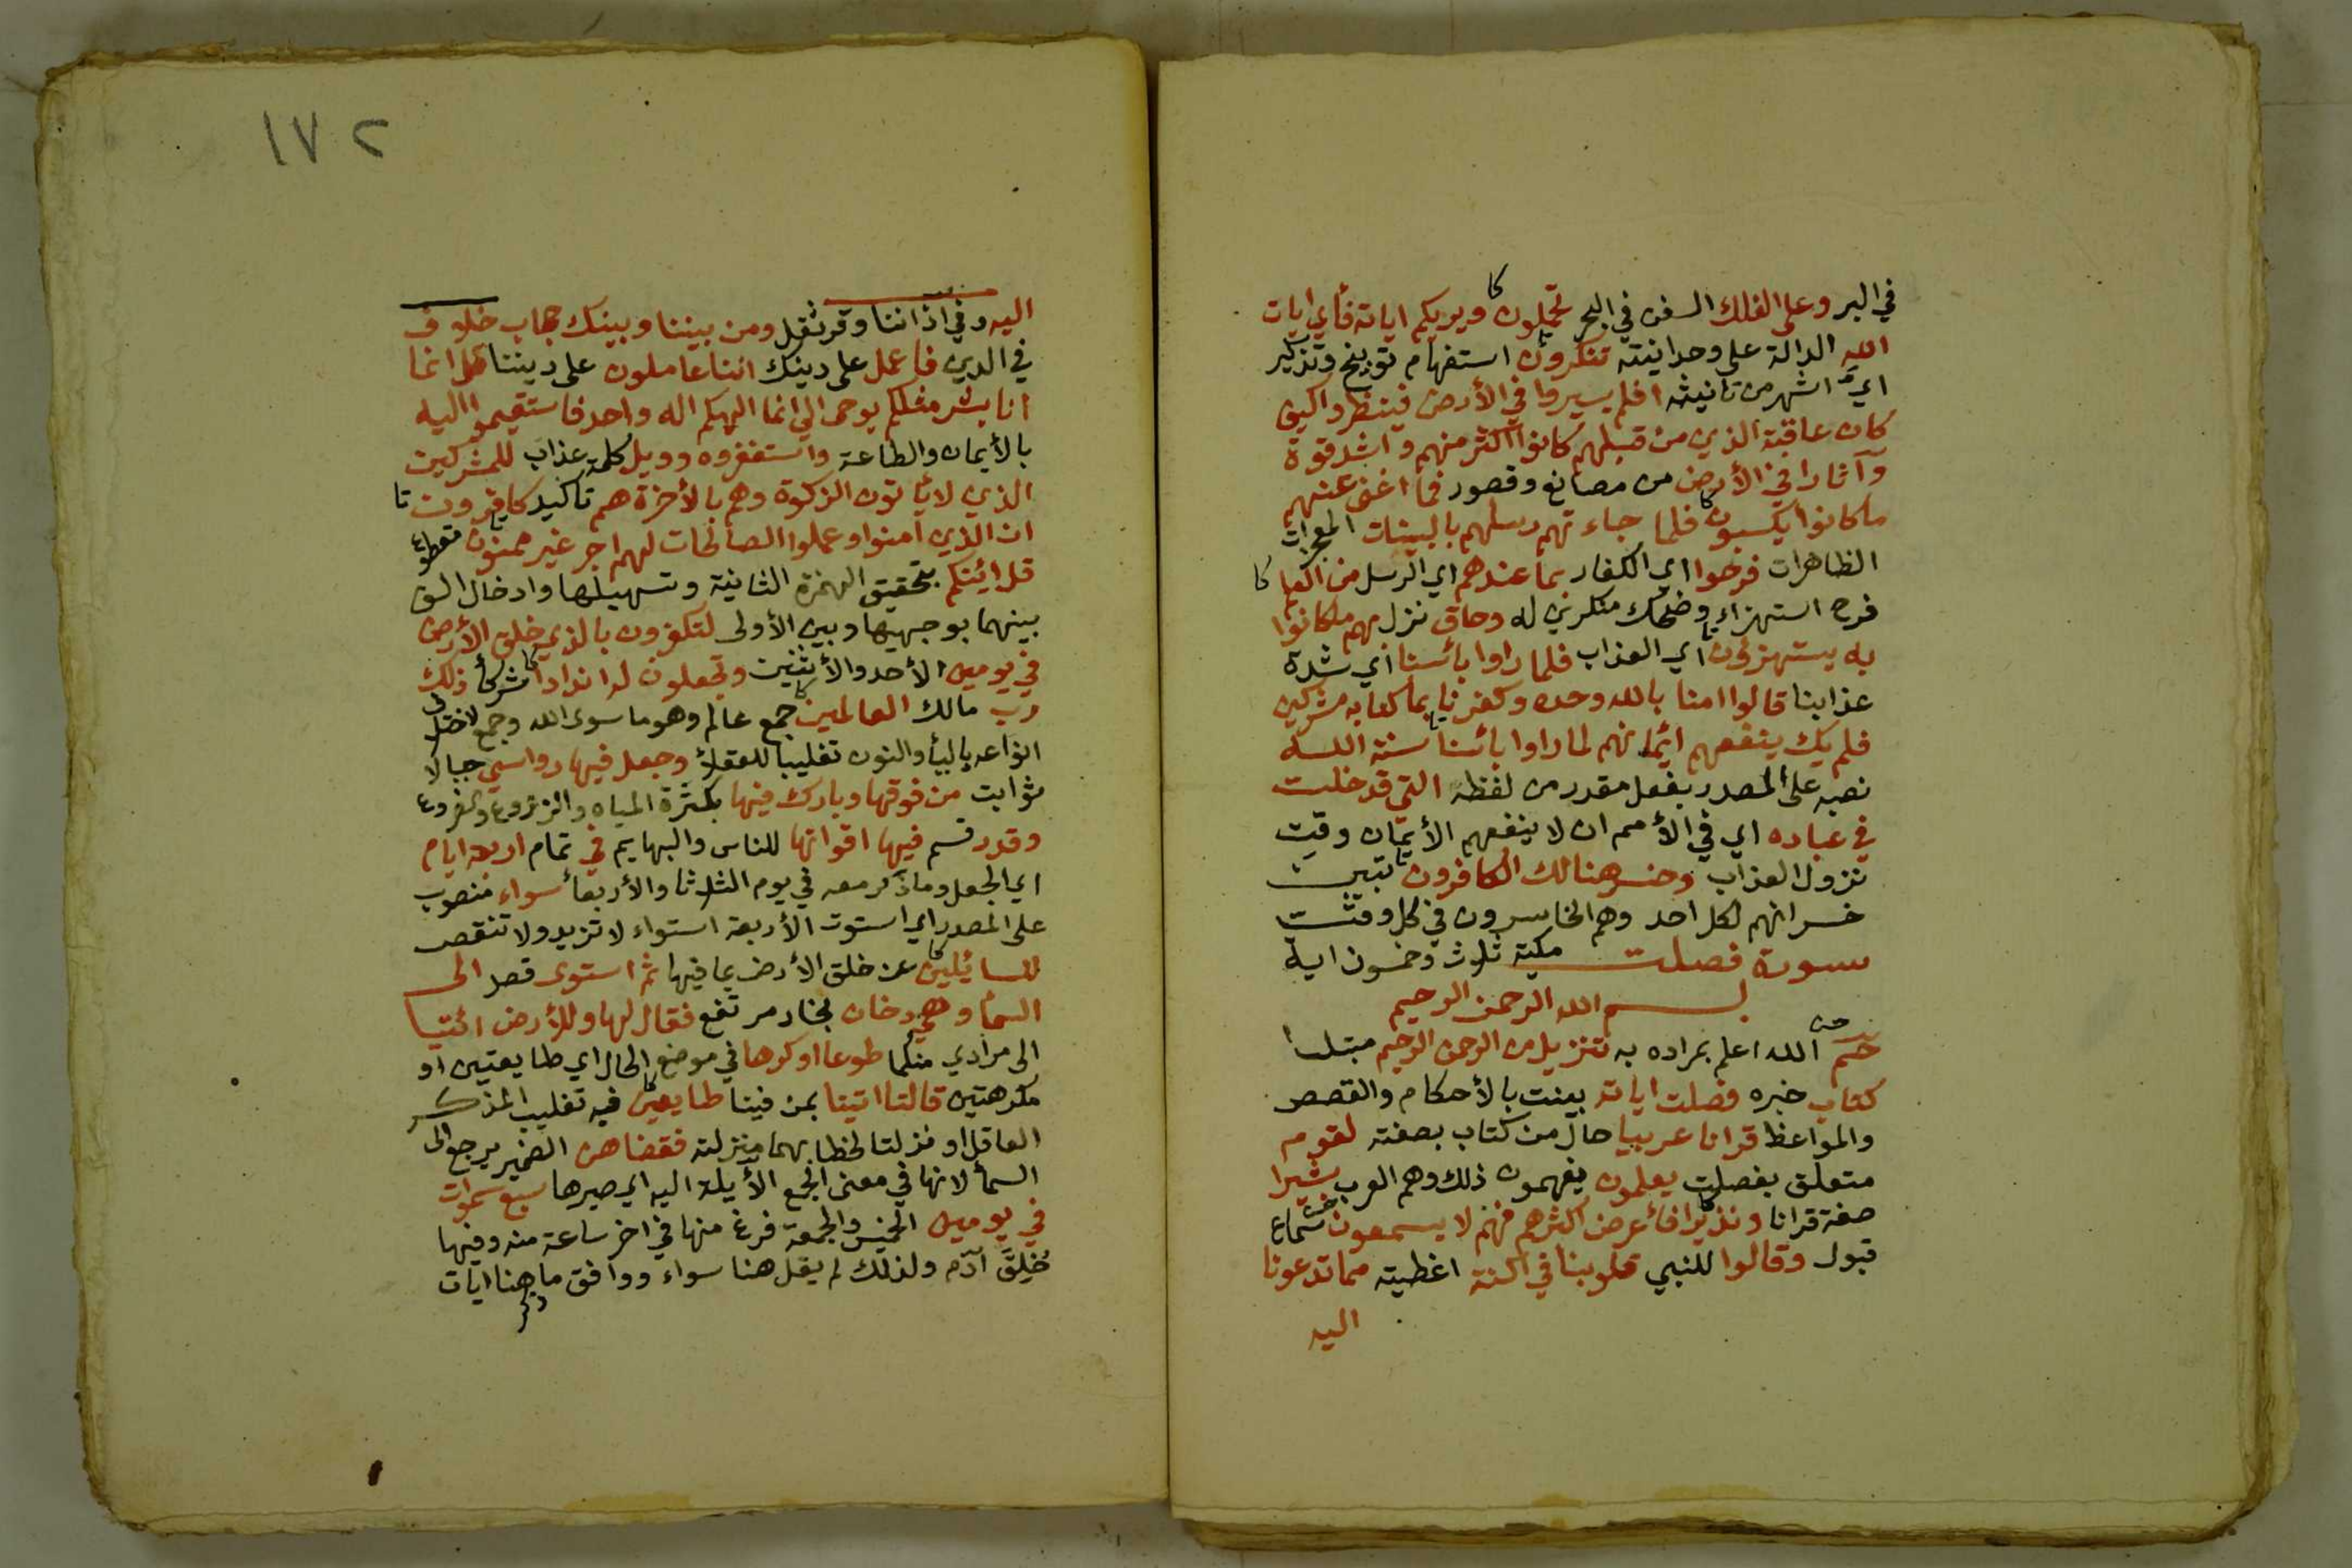 في البر وعلى الفلك السفن في البحر تحملون ويريكم اياته فأي ايات
الله الدالة على وحدانيته تنكرون استفهام توبيخ وتذكير
اي اشهر من تانيثه افلم يسيروا في الأرض فينظروا كيف
كان عاقبة الذين من قبلهم كانوا اكثر منهم واشد قوة
وآثارا في الأرض من مصانع وقصور فما اغنى عنهم
ماكانوا يكسبون فلما جاءتهم رسلهم بالبينات المعجزات
الظاهرات فرحوا اي الكفار بما عندهم اي الرسل من العلم
فرح استهزاء وضحك منكرين له وحاق نزل بهم ماكانوا
به يستهزؤن اي العذاب فلما راوا بائسنا اي شدة
عذابنا قالوا امنا بالله وحده وكفرنا بما كنا به مشركين
فلم يك ينفعهم ايمانهم لما راوا بائسنا سنة الله
نصبه على المصدر بفعل مقدر من لفظه التي قد خلت
في عباده اي في الأمم ان لا ينفعهم الأيمان وقت
نزول العذاب وخسر هنالك الكافرون تبين
خسرانهم لكل احد وهم الخاسرون في كل وقت
سورة فصلت مكية ثلاث وخمسون اية
بسم الله الرحمن الرحيم
حم الله اعلم بمراده به تنزيل من الرحمن الرحيم مبتدا
كتاب خبره فصلت اياته بينت بالأحكام والقصص
والمواعظ قرانا عربيا حال من كتاب بصفته لقوم
متعلق بفصلت يعلمون يفهمون ذلك وهم العرب بشيرا
صفة قرانا ونذيرا فأعرض اكثرهم فهم لا يسمعون سماع
قبول وقالوا للنبي قلوبنا في اكنة اغطية مما تدعونا
اليه
١٧٢
اليه وفي اذاننا وقر ثقل ومن بيننا وبينك حجاب خلوف
في الدين فاعمل على دينك اننا عاملون على ديننا قل انما
انا بشر مثلكم يوحى الي انما الهكم اله واحد فاستقيموا اليه
بالأيمان والطاعة واستغفروه وويل كلمة عذاب للمشركين
الذين لايأتون الزكوة وهم بالأخرة هم تاكيد كافرون
ان الذين امنوا وعملوا الصالحات لهم اجر غير ممنون مقطوع
قل ائنكم بتحقيق الهمزة الثانية وتسهيلها وادخال الف
بينهما بوجهيها وبين الأولى لتكفرون بالذي خلق الأرض
في يومين الأحد والأثنين وتجعلون له اندادا شركأ ذلك
رب مالك العالمين جمع عالم وهو ما سوى الله وجمع لاختلاف
انواعه باليأ والنون تغليبا للعقلأ وجعل فيها رواسي جبالا
ثوابت من فوقها وبارك فيها بكثرة المياه والزروع والضروع
وقدر قسم فيها اقواتها للناس والبهايم في تمام اربعة ايام
اي الجعل وماذكر معه في يوم الثلاثا والأربعأ سواء منصوب
على المصدر اي استوت الأربعة استواء لا تزيد ولا تنقص
للسائلين عن خلق الأرض بما فيها ثم استوى قصد الى
السمأ وهي دخان بخار مرتفع فقال لها وللأرض ائتيا
الى مرادي منكما طوعا او كرها في موضع الحال اي طايعتين او
مكرهتين قالتا اتينا بمن فينا طايعين فيه تغليب المذكر
العاقل او نزلتا لخطابهما منزلته فقضاهن الضمير يرجع الى
السمأ لانها في معنى الجمع الأيلة اليه اي صيرها سبع سموات
في يومين الخميس والجمعة فرغ منها في اخر ساعة منه وفيها
خلق آدم ولذلك لم يقل هنا سواء ووافق ما هنا ايات